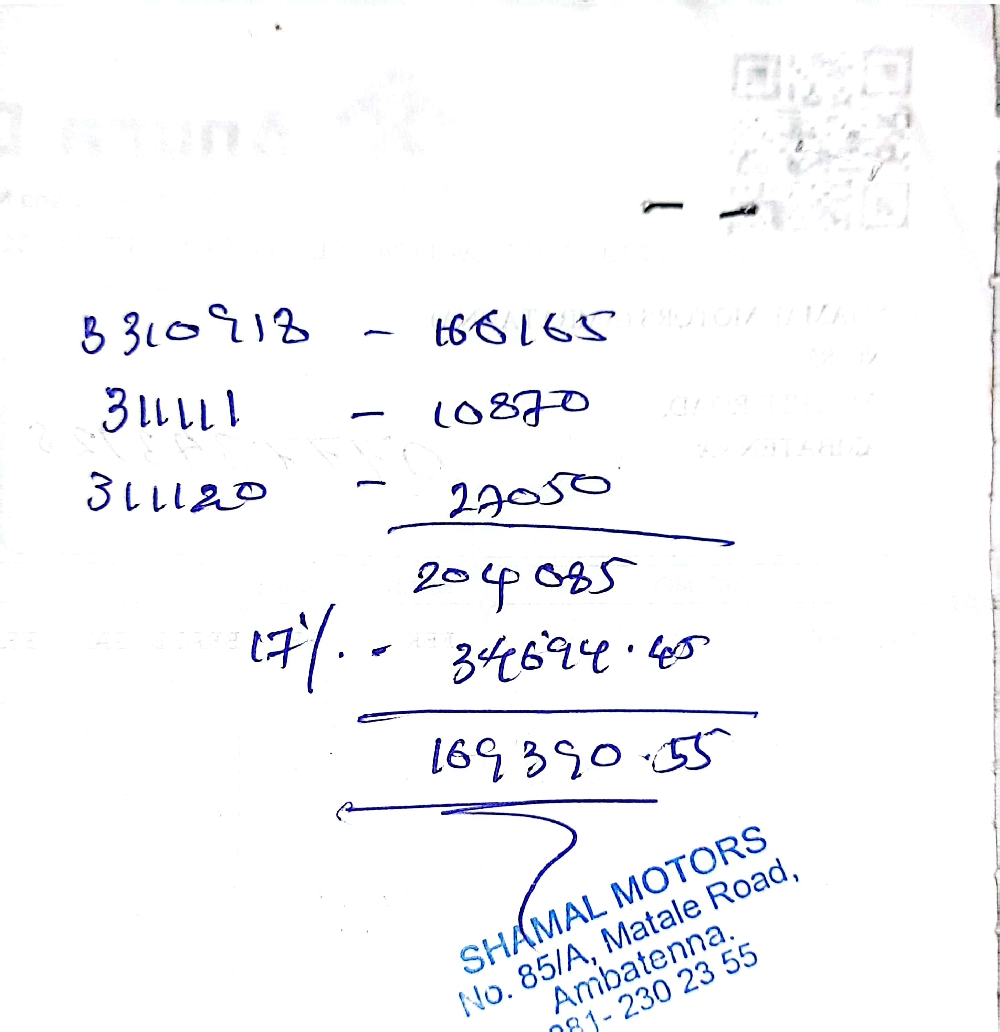 3310918 - 166165
311111 - 10870
311120 - 27050
204085
17%. - 34694.45
169390.55
SHAMAL MOTORS
No. 85/A, Matale Road,
Ambatenna.
081-230 23 55